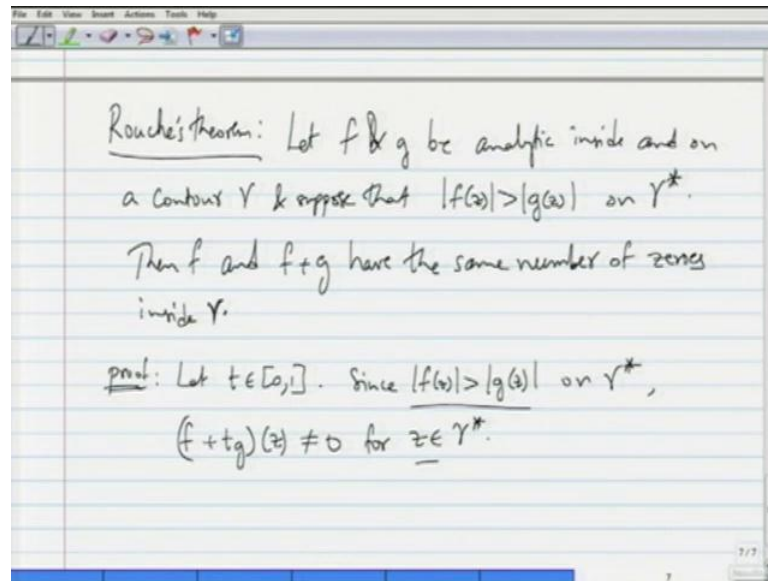 File Edit View Insert Actions Tools Help
Rouche's theorem: Let f & g be analytic inside and on
a contour γ & suppose that |f(z)|>|g(z)| on γ*.
Then f and f+g have the same number of zeroes
inside γ.
proof: Let t∈[0,1]. Since |f(z)|>|g(z)| on γ*,
(f+tg)(z) ≠ 0 for z∈ γ*.
7/7
7